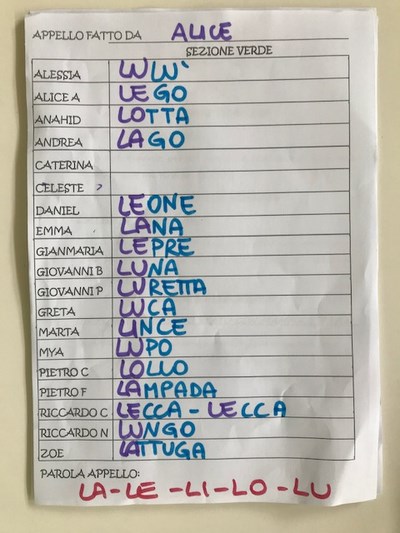 APPELLO FATTO DA ALICE
SEZIONE VERDE
ALESSIA LULU'
ALICE A LEGO
ANAHID LOTTA
ANDREA LAGO
CATERINA
CELESTE ?
DANIEL LEONE
EMMA LANA
GIANMARIA LEPRE
GIOVANNI B LUNA
GIOVANNI P LURETTA
GRETA LUCA
MARTA LINCE
MYA LUPO
PIETRO C LOLLO
PIETRO F LAMPADA
RICCARDO C LECCA - LECCA
RICCARDO N LUNGO
ZOE LATTUGA
PAROLA APPELLO:
LA - LE - LI - LO - LU